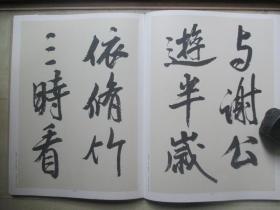 与谢公
遊半歲
依脩竹
三時看